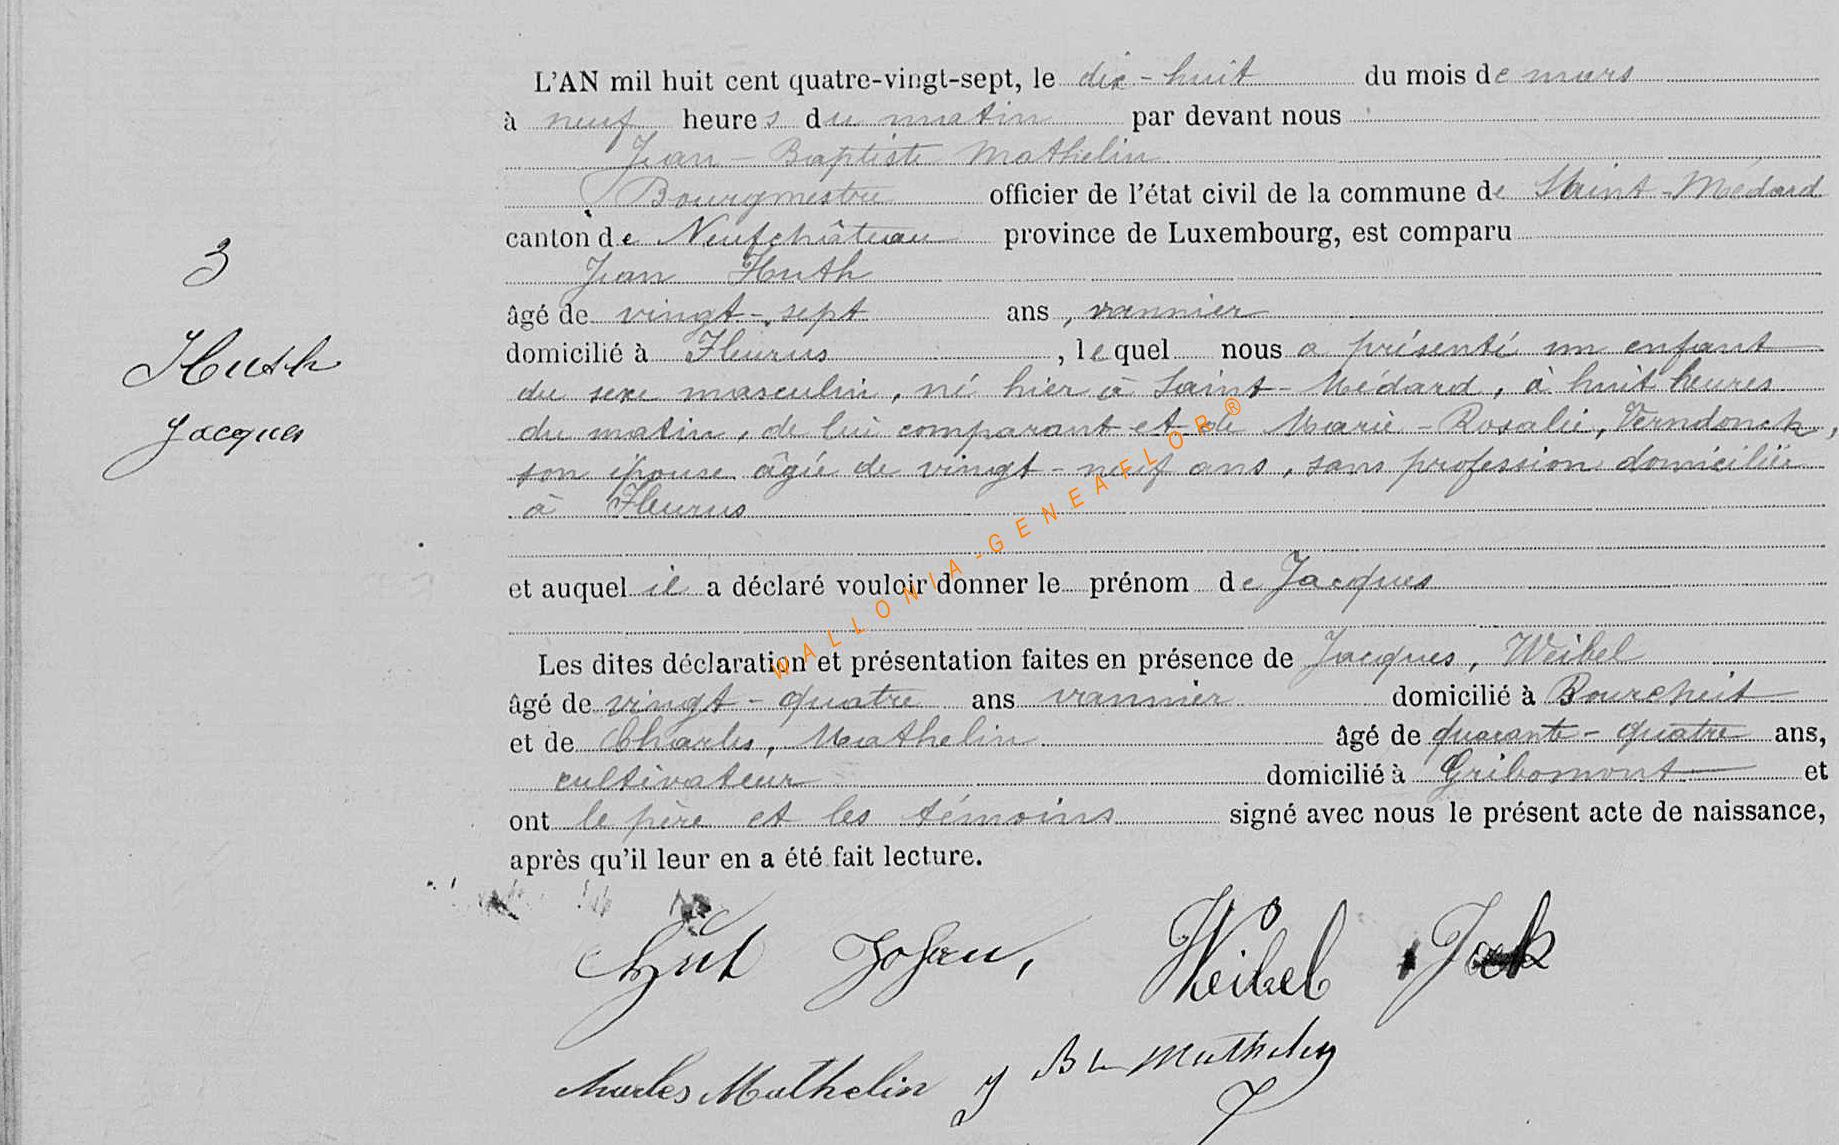 L'AN mil huit cent quatre-vingt-sept, le dix-huit du mois de mars
à neuf heures du matin par devant nous
Jean-Baptiste Mathelin
Bourgmestre officier de l'état civil de la commune de Saint-Médard
canton de Neufchâteau province de Luxembourg, est comparu
3
Jean Huth
âgé de vingt-sept ans, vannier
Huth
domicilié à Fleurus, lequel nous a présenté un enfant
du sexe masculin, né hier à Saint-Médard, à huit heures
Jacques
du matin, de lui comparant et de Marie-Rosalie, Verndonck,
son épouse âgée de vingt-neuf ans, sans profession domiciliée
à Fleurus
et auquel il a déclaré vouloir donner le prénom de Jacques
Les dites déclaration et présentation faites en présence de Jacques, Weibel
âgé de vingt-quatre ans vannier domicilié à Bourcheit
et de Charles, Mathelin âgé de quarante-quatre ans,
cultivateur domicilié à Gribomont et
ont le père et les témoins signé avec nous le présent acte de naissance,
après qu'il leur en a été fait lecture.
Hüt Johan, Weibel Jack
Charles Mathelin J Bte Mathelin
WALLONIA-GENEAFLOR®